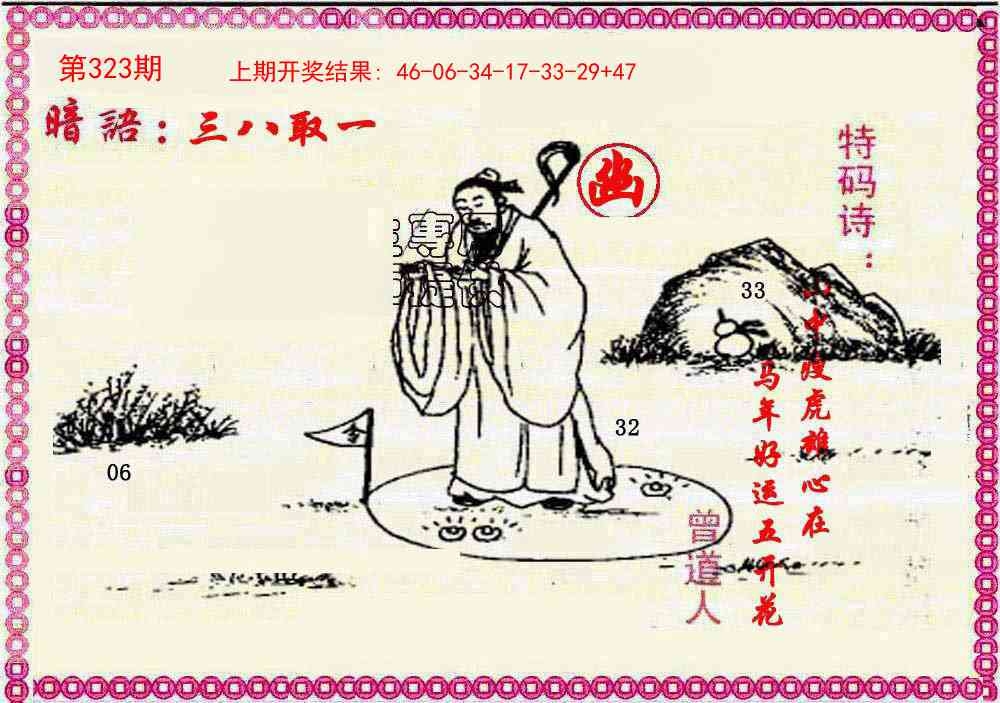 第323期
上期开奖结果：46-06-34-17-33-29+47
暗語：三八取一
幽
特码诗：
山中瘦虎雄心在
马年好运五开花
曾道人
專
33
32
06
令